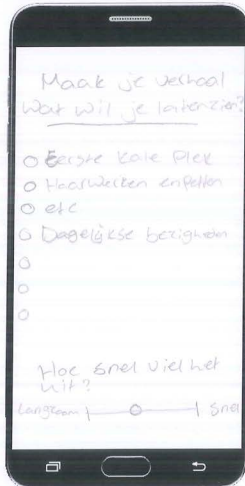 Maak je verhaal
Wat wil je laten zien?
Eerste kale Plek
Haarwerken en petten
etc
Dagelijkse bezigheden
Hoe snel viel het
uit?
Langzaam snel